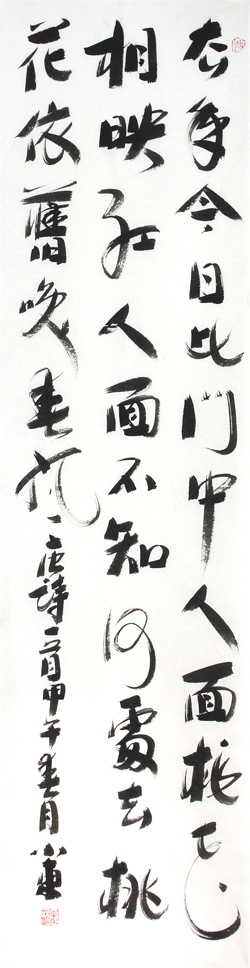 去年今日此门中人面桃花
相映红人面不知何處去桃
花依舊笑春风唐诗一首甲午春月小東